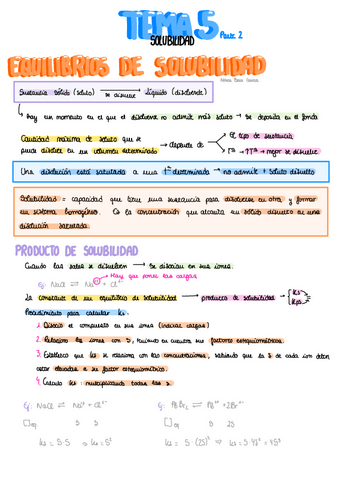 TEMA 5 Parte 2
SOLUBILIDAD
EQUILIBRIOS DE SOLUBILIDAD
Sustancia sólido (soluto) → se disuelve Líquido (disolvente)
↳ hay un momento en el que el disolvente no admite más soluto → se deposita en el fondo
Cantidad máxima de soluto que se puede disolver en un volumen determinado → depende de
→ El tipo de sustancia
→ Tª → ↑Tª → mejor se disuelve
Una disolución está saturada a una Tª determinada → no admite + soluto disuelto
Solubilidad = capacidad que tiene una sustancia para disolverse en otra y formar
un sistema homogéneo. Es la concentración que alcanza un sólido disuelto en una
disolución saturada.
PRODUCTO DE SOLUBILIDAD
Cuando las sales se disuelven → se disocian en sus iones.
→ Hay que poner las cargas
Ej: NaCl ⇌ Na⁺ + Cl⁻
La constante de un equilibrio de solubilidad → producto de solubilidad → Ks
Kps
Procedimiento para calcular Ks:
1. Disocio el compuesto en sus iones (indicar cargas)
2. Relaciono los iones con S, teniendo en cuenta sus factores estequiométricos.
3. Establezco que Ks se relaciona con las concentraciones, sabiendo que la S de cada ion deben
estar elevadas a su factor estequiométrico.
4. Calculo Ks: multiplicando todas las S.
Ej: NaCl ⇌ Na⁺ + Cl⁻
[ ]eq S S
Ks = S·S ⇒ Ks = S²
Ej: PbBr₂ ⇌ Pb²⁺ + 2Br⁻
[ ]eq S 2S
Ks = S·(2S)² ⇒ Ks = S·4S² = 4S³